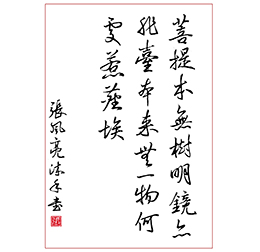 菩提本無樹明鏡亦
非臺本来無一物何
處惹塵埃
張風亮沐手書